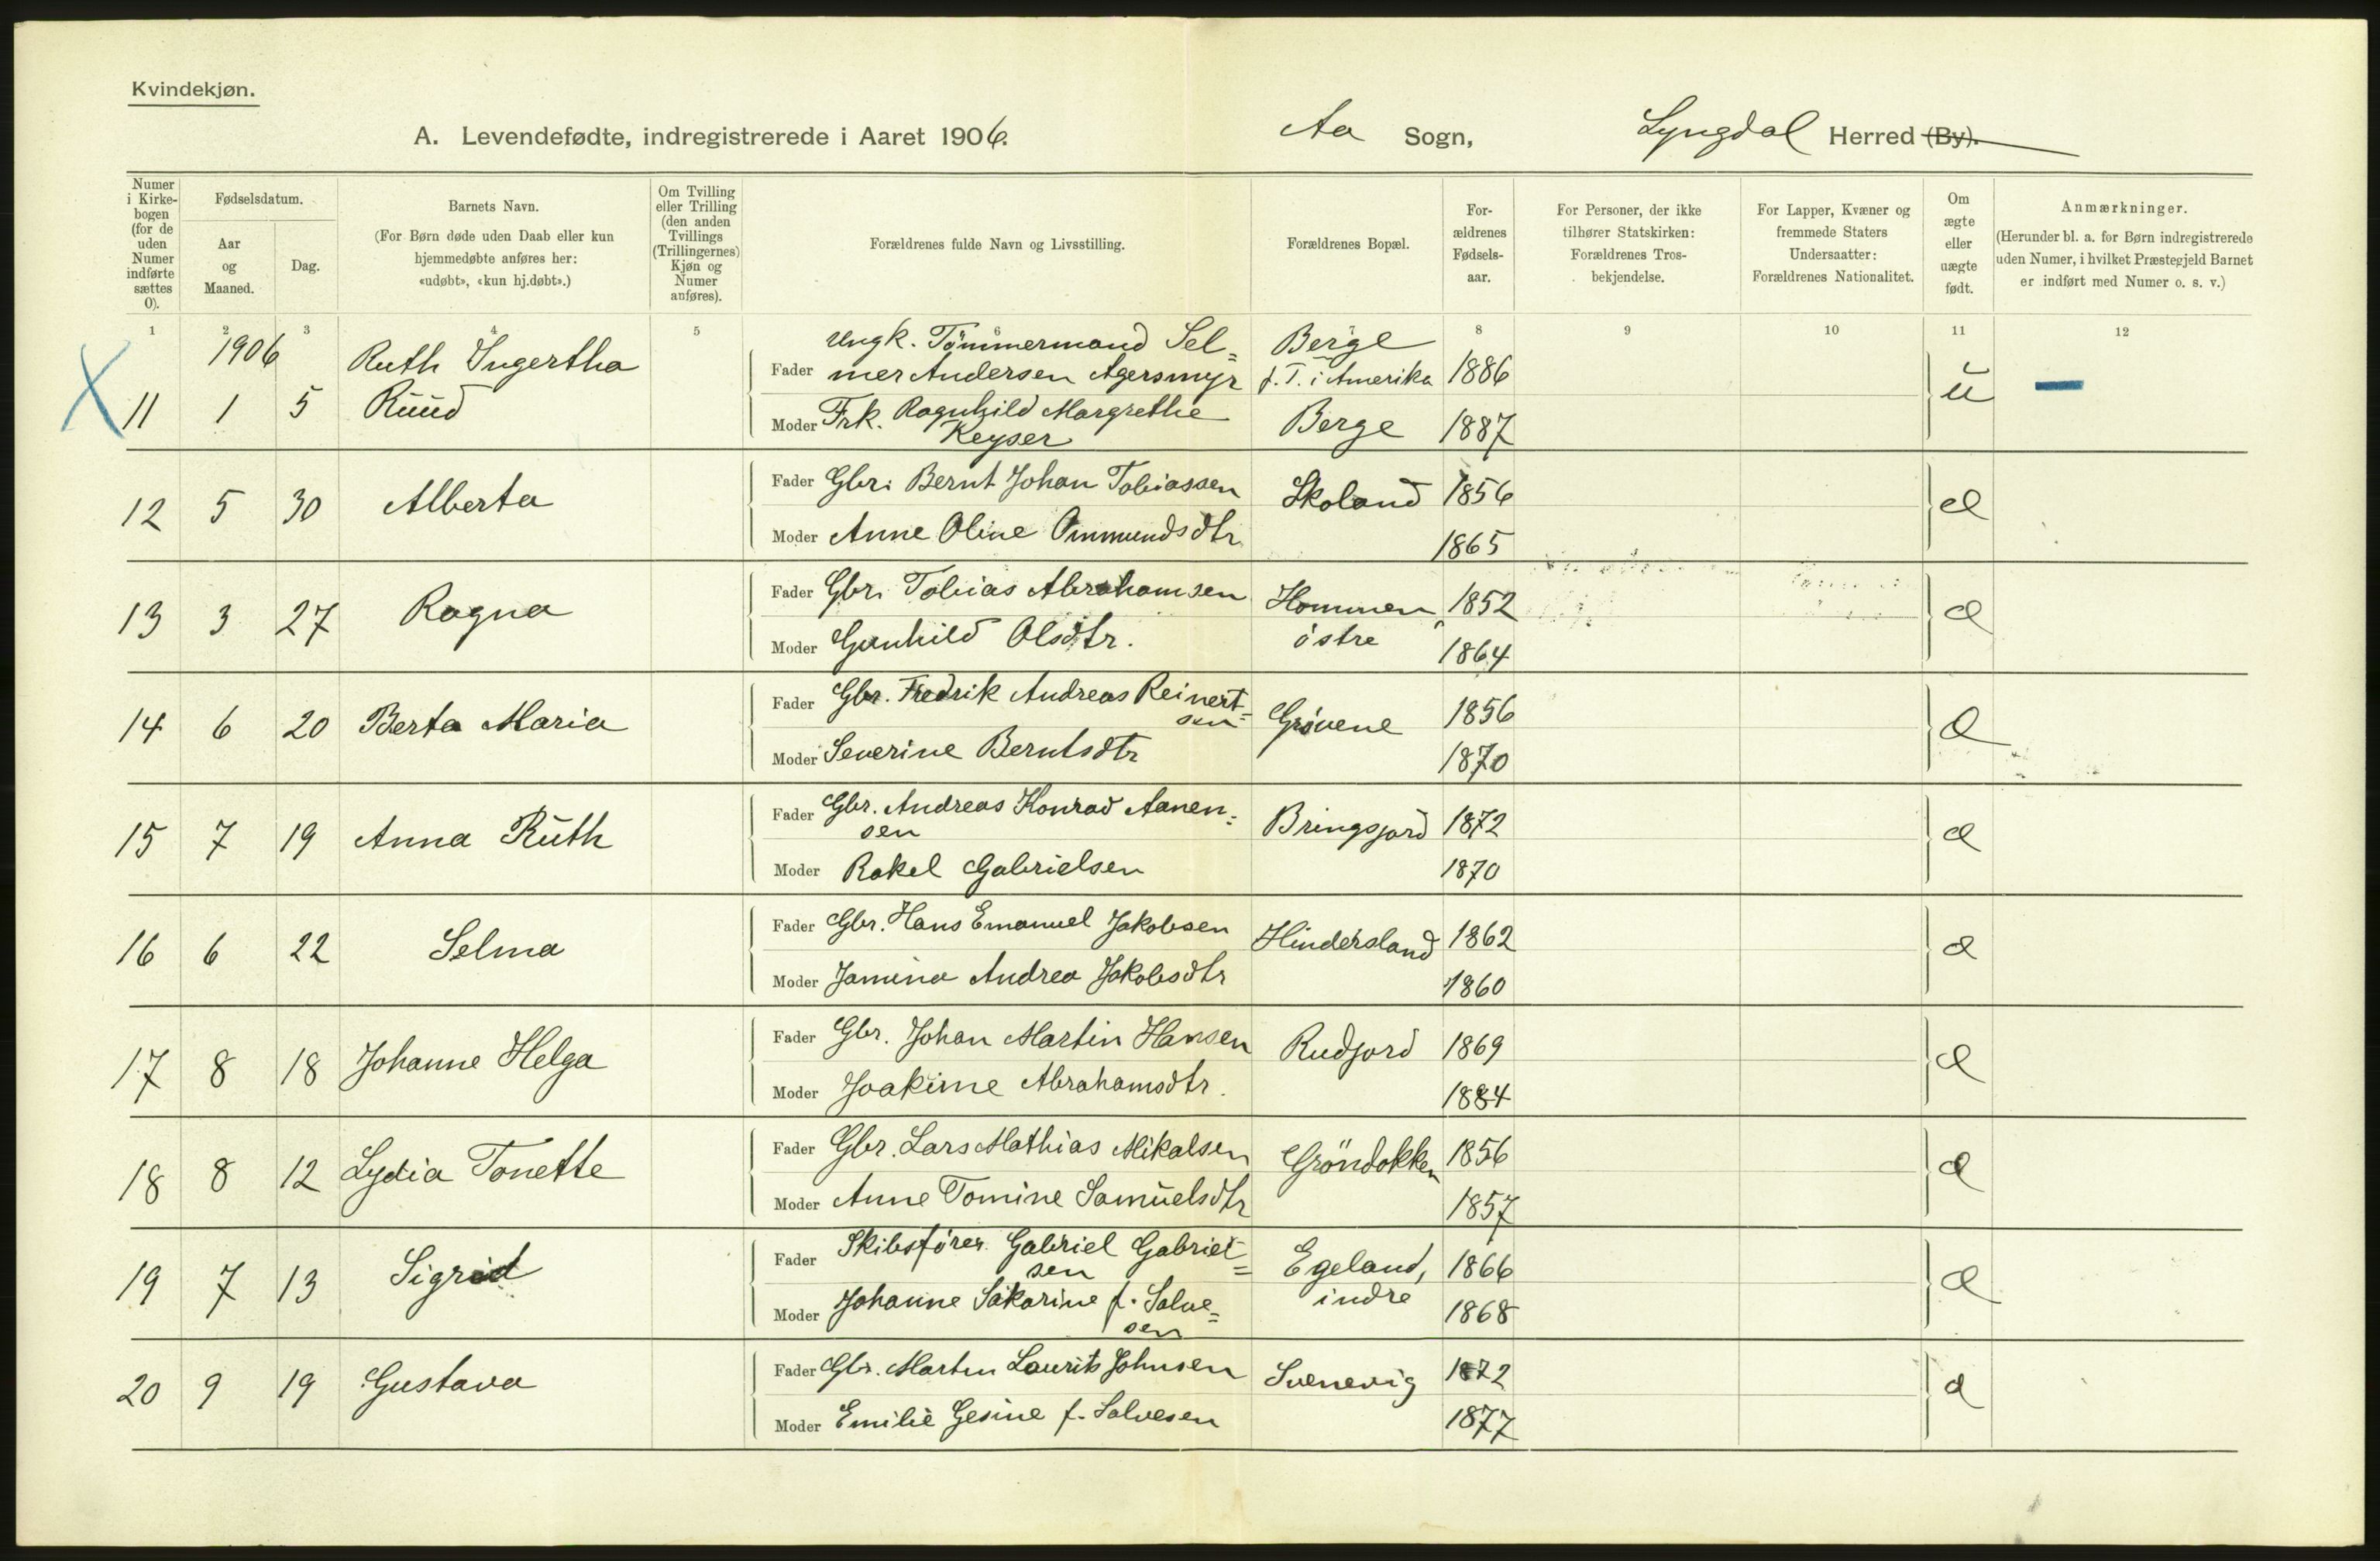 Kvindekjøn.
A. Levendefødte, indregistrerede i Aaret 1906. Aa Sogn, Lyngdal Herred (By).
Numer i Kirkebogen (for de uden Numer indførte sættes 0).
Fødselsdatum.
Aar og Maaned.
Dag.
Barnets Navn.
(For Børn døde uden Daab eller kun hjemmedøbte anføres her: «udøbt», «kun hj.døbt».)
Om Tvilling eller Trilling (den anden Tvillings (Trillingernes) Kjøn og Numer anføres).
Forældrenes fulde Navn og Livsstilling.
Forældrenes Bopæl.
Forældrenes Fødselsaar.
For Personer, der ikke tilhører Statskirken: Forældrenes Trosbekjendelse.
For Lapper, Kvæner og fremmede Staters Undersaatter: Forældrenes Nationalitet.
Om ægte eller uægte født.
Anmærkninger.
(Herunder bl. a. for Børn indregistrerede uden Numer, i hvilket Præstegjeld Barnet er indført med Numer o. s. v.)
1 2 3 4 5 6 7 8 9 10 11 12
1906
X 11 1 5 Ruth Ingertha Ruud
Fader Ungk. Tömmermand Sel= mer Andersen Agersmyr Berge f. T. i Amerika 1886 u —
Moder Frk. Ragnhild Margrethe Keyser Berge 1887
12 5 30 Alberta
Fader Gbr. Bernt Johan Tobiassen Skoland 1856 æ
Moder Anne Oline Ommundsdtr 1865
13 3 27 Ragna
Fader Gbr. Tobias Abrahamsen Hommen östre 1852 æ
Moder Gunhild Olsdtr. 1864
14 6 20 Berta Maria
Fader Gbr. Fredrik Andreas Reinert= sen Grövene 1856 æ
Moder Severine Berntsdtr 1870
15 7 19 Anna Ruth
Fader Gbr. Andreas Konrad Aanen= sen Bringsjord 1872 æ
Moder Rakel Gabrielsen 1870
16 6 22 Selma
Fader Gbr. Hans Emanuel Jakobsen Hindersland 1862 æ
Moder Jamina Andrea Jakobsdtr 1860
17 8 18 Johanne Helga
Fader Gbr. Johan Martin Hansen Rudjord 1869 æ
Moder Joakime Abrahamsdtr. 1884
18 8 12 Lydia Tonette
Fader Gbr. Lars Mathias Mikalsen Gröndokken 1856 æ
Moder Anne Tomine Samuelsdtr 1857
19 7 13 Sigrid
Fader Skibsförer Gabriel Gabriel= sen Egeland, indre 1866 æ
Moder Johanne Sakarine f. Salve= sen 1868
20 9 19 Gustava
Fader Gbr. Martin Laurits Johnsen Svenevig 1872 æ
Moder Emilie Gesine f. Salvesen 1877